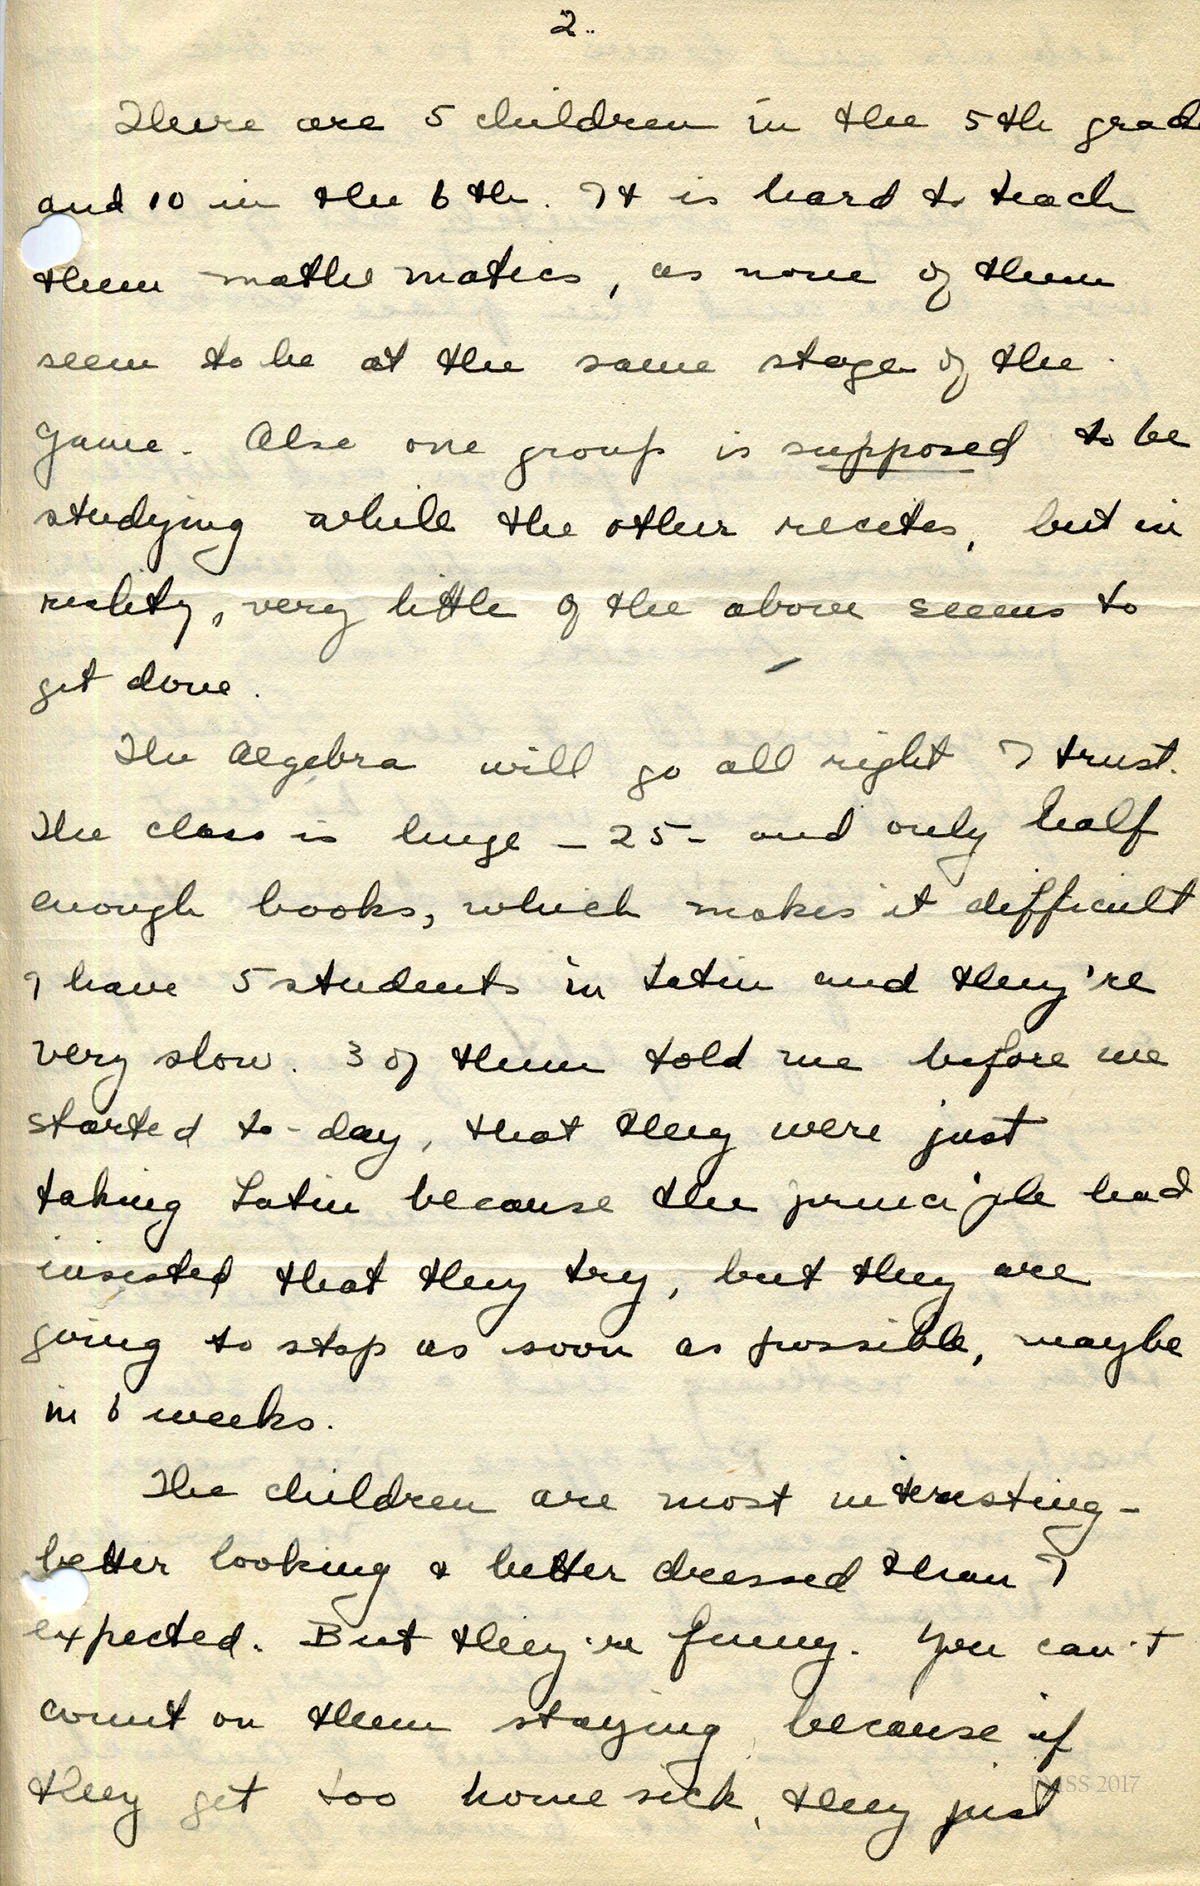 2..
There are 5 children in the 5th grade
and 10 in the 6th. It is hard to teach
them mathematics, as none of them
seem to be at the same stage of the
game. Also one group is supposed to be
studying while the other recites, but in
reality, very little of the above seems to
get done.
The Algebra will go all right I trust.
The class is huge – 25 – and only half
enough books, which makes it difficult
I have 5 students in Latin and they're
very slow. 3 of them told me before we
started to-day, that they were just
taking Latin because the principle had
insisted that they try, but they are
going to stop as soon as possible, maybe
in 6 weeks.
The children are most interesting –
better looking & better dressed than I
expected. But they're funny. You can't
count on them staying because if
they get too homesick, they just
2017